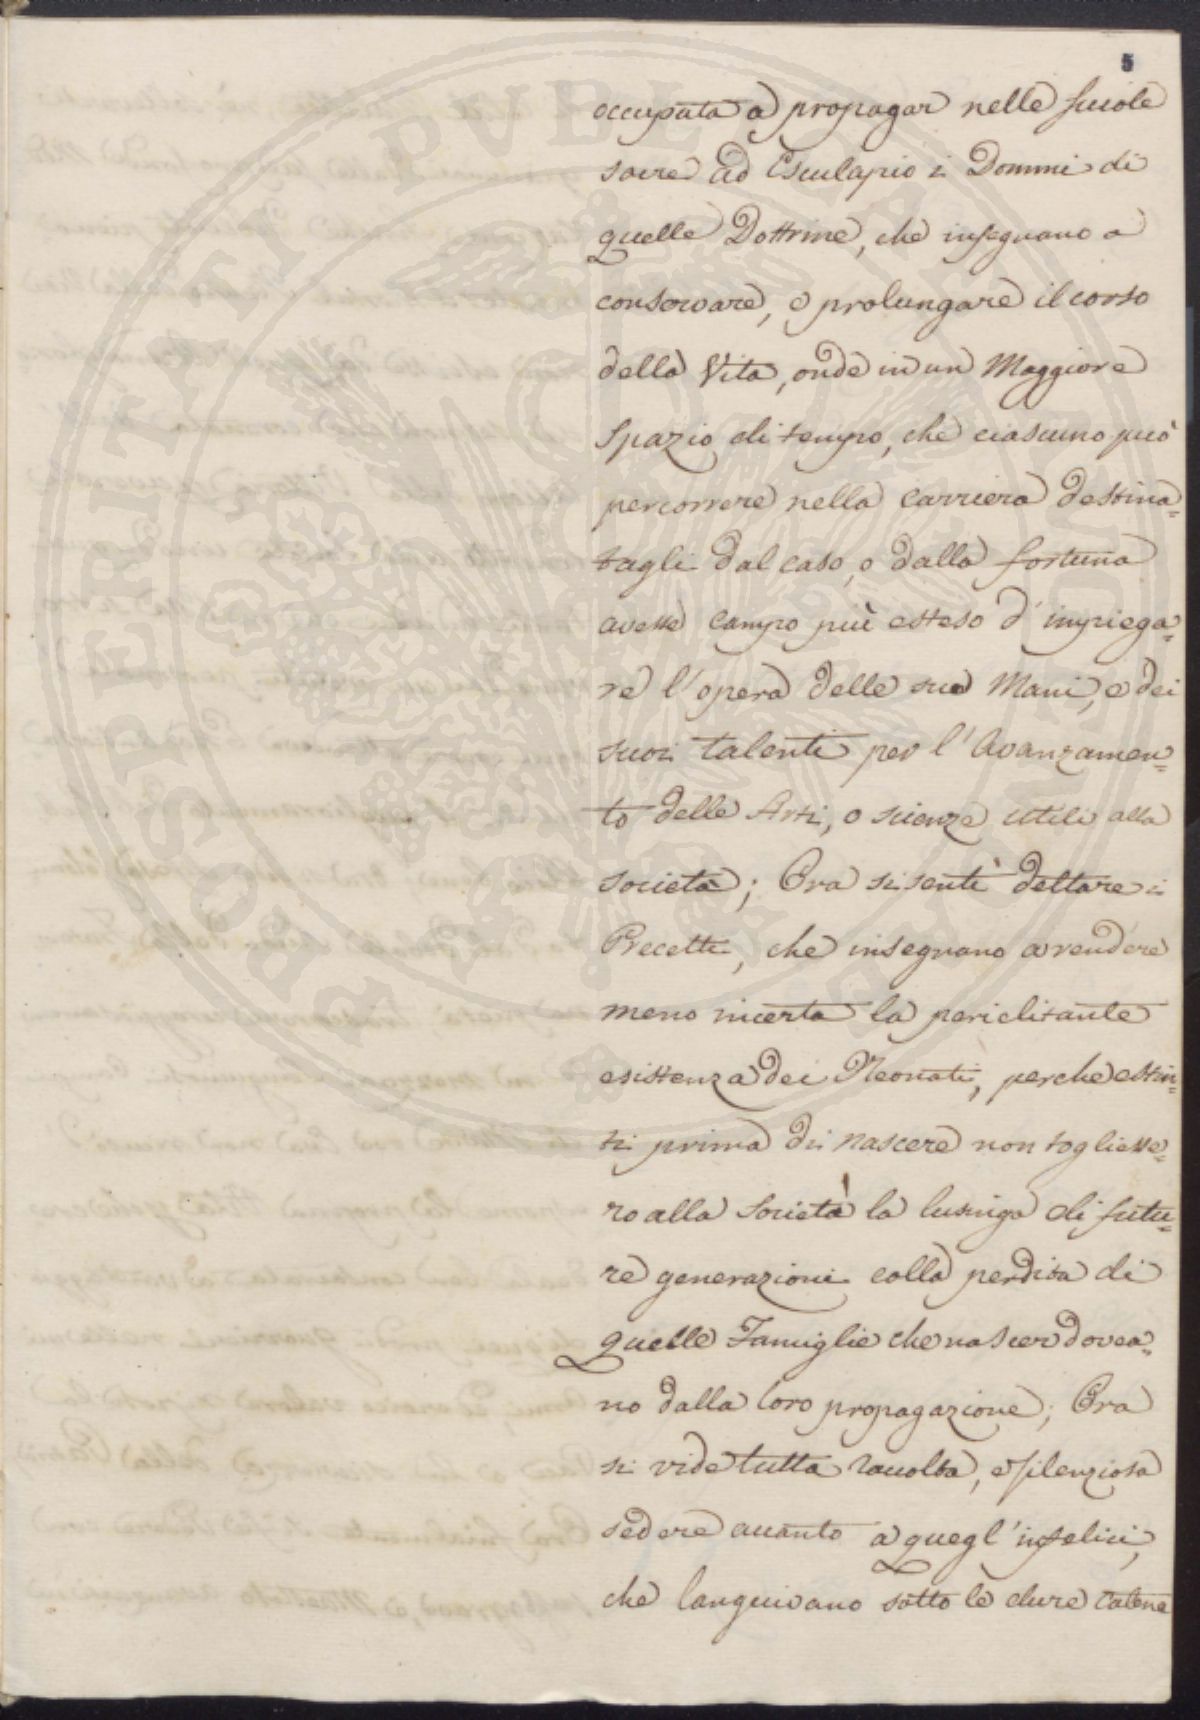 5
occupata a propagar nelle Scuole
sacre ad Esculapio i Dommi di
quelle Dottrine, che insegnano a
conservare, e prolungare il corso
della Vita, onde in un Maggiore
Spazio di tempo, che ciascuno può
percorrere nella Carriera destina=
tagli dal caso, o dalla fortuna
avesse Campo più esteso d'impiega=
re l'opera delle sue Mani, e dei
suoi talenti per l'Avanzamen=
to delle Arti, o scienze utili alla
società; Ora si sentì dettare i
Precetti, che insegnano a rendere
meno incerta la periclitante
esistenza dei Neonati, perche estin=
ti prima di nascere non togliesse=
ro alla Società la lusinga di futu=
re generazioni colla perdita di
quelle Famiglie che nascer dovea=
no dalla loro propagazione; Ora
si vide tutta raccolta, e silenziosa
sedere accanto a quegl'infelici,
che languivano sotto le dure Catene
PROSPERITATI PVBLICAE